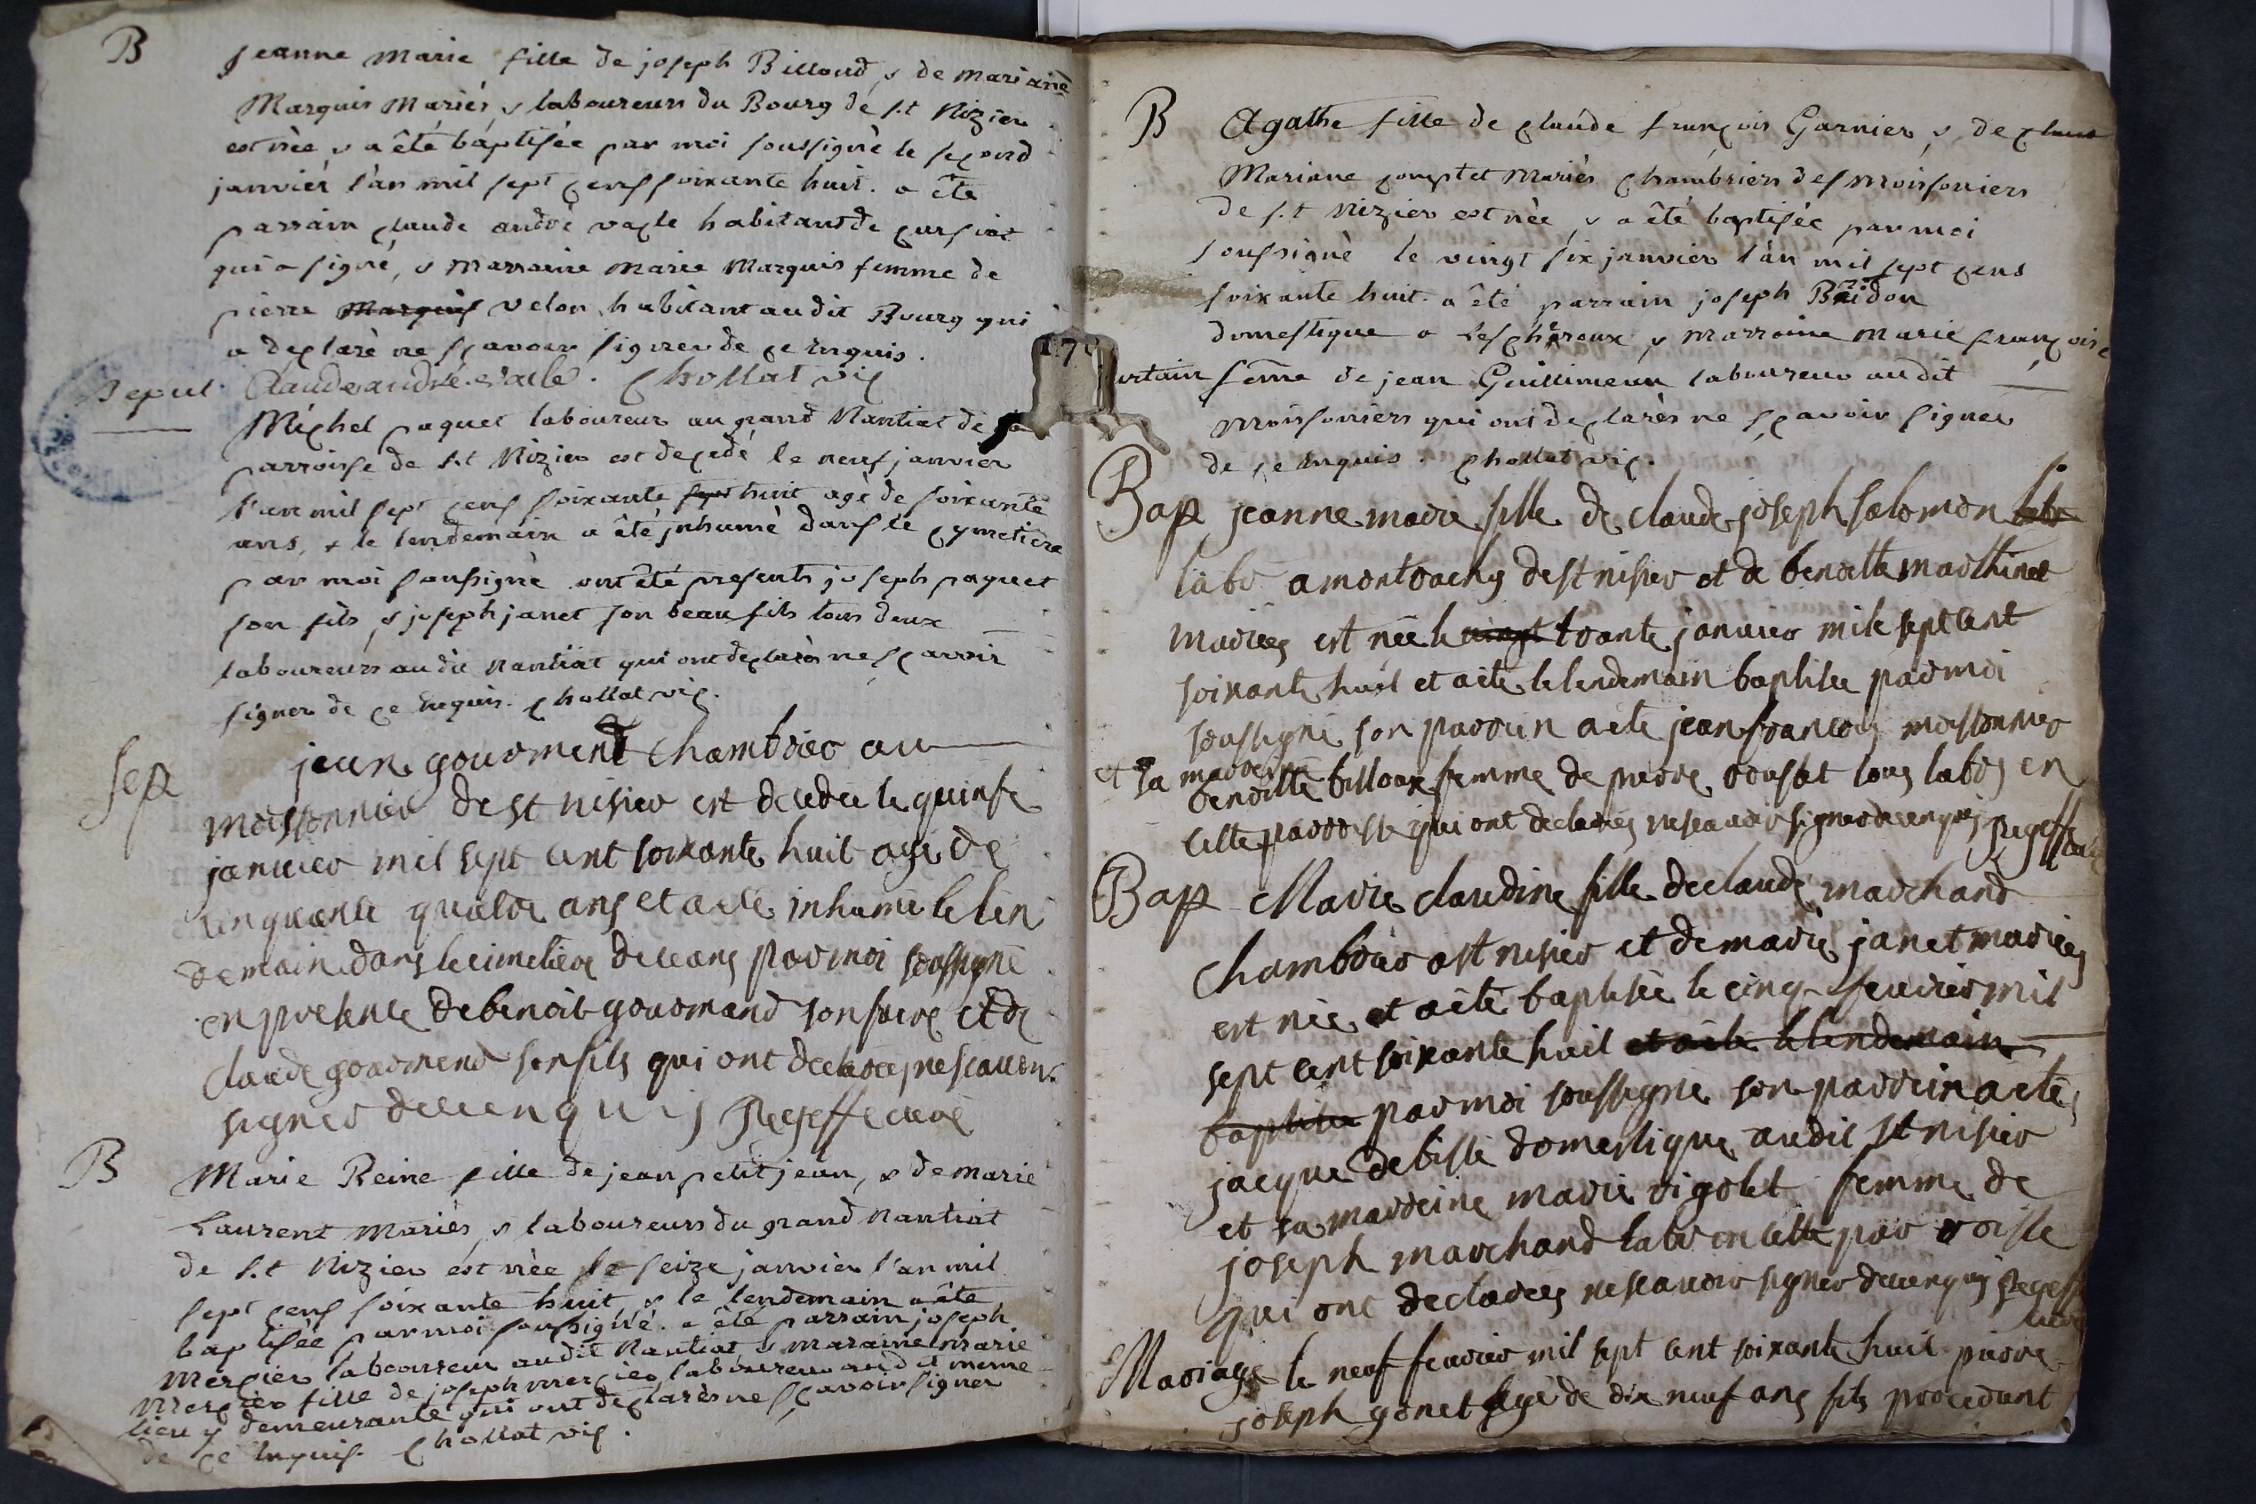 B Jeanne Marie fille de joseph Billoud, & de mariane
Marquis Mariés, & laboureurs du Bourg de S.t Nizier
est née & a été baptisée par moi soussigné le second
janvier l'an mil sept cens soixante huit. a été
parrain claude andré vacle habitant de curciat
qui a signé, & marraine marie Marquis femme de
pierre Marquis velon habitant audit Bourg qui
a declaré ne sçavoir signer de ce Enquis.
Claude andré vacle. Chollat vic
Sepul
Michel paquet laboureur au grand Nantiat de la
parroisse de S.t Nizier est decedé le neuf janvier
l'an mil sept cens soixante sept huit agé de soixante
ans, & le lendemain a été inhumé dans le cymetiere
par moi soussigné ont été presents joseph paquet
son fils, & joseph janet son beau fils tous deux
laboureurs au dit nantiat qui ont declarés ne sçavoir
signer de ce Enquis. Chollat vic.
Sep jean gourmend chambrier au
moissonnier de st nisier est decedee le quinse
janvier mil sept cent soixante huit agé de
cinquante quatre ans et a ete inhumé le len
demain dans le cimetiere de ceans par moi soussigné
en presence de benoit gourmand son frere et de
claude gourmend son fils qui ont declarees ne scavoir
signer de ce enquis
B Marie Reine fille de jean petitjean, & de marie
Laurent mariés, & laboureurs du grand nantiat
de S.t Nizier est née le seize janvier l'an mil
sept cens soixante huit & le lendemain a été
baptisée par moi soussigné. a été parrain joseph
mercier laboureur audit Nantiat & maraine marie
mercier fille de joseph mercier laboureur audit meme
lieu y demeurante qui ont declarés ne sçavoir signer
de ce Enquis. Chollat vic.
170
B Agathe fille de claude françois Garnier, & de
Mariane comptet Mariés chambriers des moissoniers
de S.t Nizier est née, & a été baptisée par moi
soussigné le vingt six janvier l'an mil sept cens
soixante huit. a été parrain joseph Bridon
domestique a Lescheroux & marraine Marie françoise
urtain feme de jean Guillimeun laboureur au dit
moissoniers qui ont declarés ne sçavoir signer
de ce Enquis. Chollat vic.
Bap jeanne marie fille de claude joseph salomon labr
labr a montrachy de st nisier et de benoitte marthinet
mariees est née le vingt trante janvier mile sept cent
soixante huit et a ete le lendemain baptisee par moi
soussigné son parrein a ete jean francois moissonnier
et sa marreine
benoitte billoux femme de pierre rousset tous labrs en
cette parroisse qui ont declarees ne scavoir signer de ce enquis
Bap Marie claudine fille de claude marchand
chambrier a st nisier et de marie janet mariees
est née et a été baptisée le cinq fevrier mil
sept cent soixante huit et a ete le lendemain
baptisee par moi soussigné son parrein a ete
jacque debiste domestique audit st nisier
et sa marreine marie rigolet femme de
joseph marchand labr en cette par roisse
qui ont declarees ne scavoir signer de ce enquis
Mariage le neuf fevrier mil sept cent soixante huit pierre
joseph gonet agé de dix neuf ans fils procedant